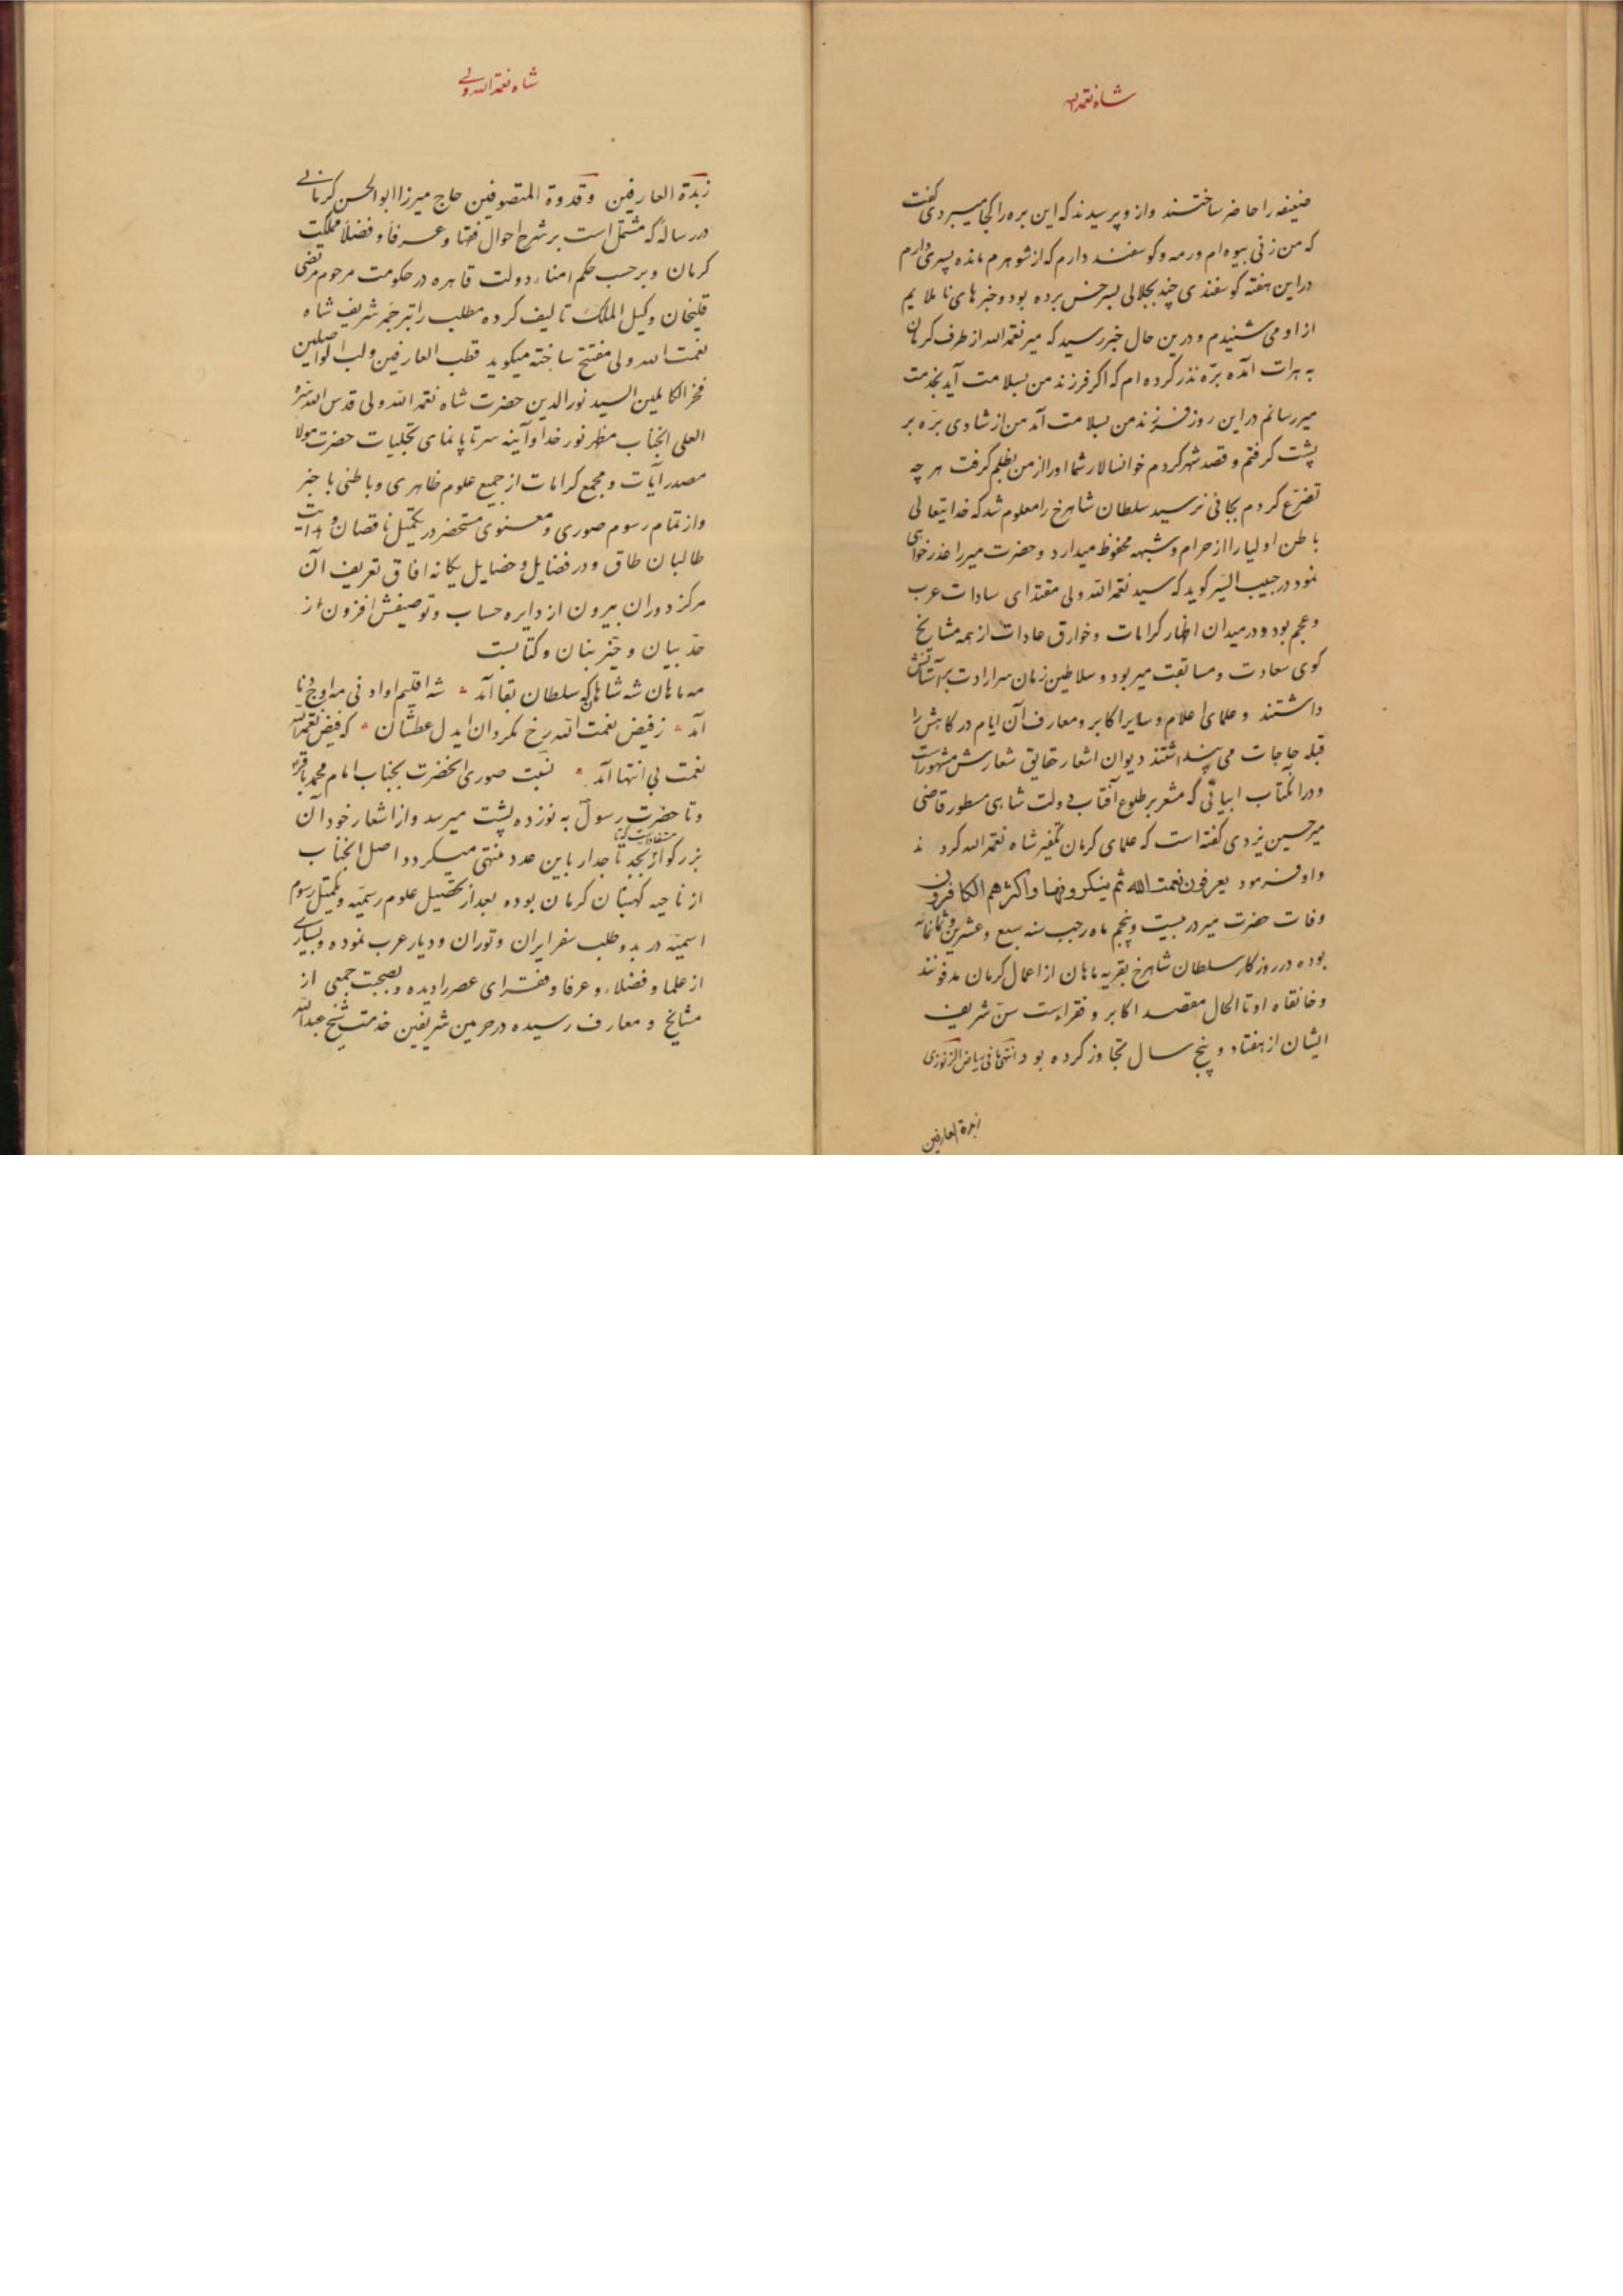 شاه نعمة الله
ضعیفه را حاضر ساختند و از و پرسیدند که این بره را کجا میبردی گفت
که من زنی بیوه ام و رمه و گوسفند دارم که از شوهرم مانده پسری دارم
در این هفته گوسفندی چند بجلابی بسرخس برده بود و خبرهای ناملایم
از او می شنیدم و درین حال خبر رسید که میر نعمة الله از طرف کرمان
به هرات آمده بره نذر کرده ام که اکر فرزند من بسلامت آید بخدمت
میر رسانم در این روز فرزند من بسلامت آمد من از شادی بره بر
پشت گرفتم و قصد شهر کردم خوانسالار شما او را از من بظلم گرفت هر چه
تضرع کردم بجائی نرسید سلطان شاهرخ را معلوم شد که خدایتعالی
باطن اولیا را از حرام و شبهه محفوظ میدارد و حضرت میر را عذرخواهی
نمود در حبیب السیر کوید که سید نعمة الله ولی مقتدای سادات عرب
و عجم بود و در میدان اظهار کرامات و خوارق عادات از همه مشایخ
کوی سعادت و مسابقت میربود و سلاطین زمان سر ارادت بر آستانش
داشتند و علمای اعلام و سایر اکابر و معارف آن ایام درکاهش را
قبله حاجات می پنداشتند دیوان اشعار حقایق شعارش مشهور است
و در آنکتاب ابیاتی که مشعر بر طلوع آفتاب دولت شاهی مسطور قاضی
میر حسین یزدی گفته است که علمای کرمان تکفیر شاه نعمة الله کردند
و او فرمود یعرفون نعمت الله ثم ینکرونها و اکثرهم الکافرون
وفات حضرت میر در بیست و پنجم ماه رجب سنه سبع و عشرین و ثمانمائه
بوده در روزکار سلطان شاهرخ بقریه ماهان از اعمال کرمان مدفونند
و خانقاه او تا الحال مقصد اکابر و فقراست سن شریف
ایشان از هفتاد و پنج سال تجاوز کرده بود انتهی ما فی ریاض الزنوزی
زبدة العارفین
شاه نعمة الله ولی
زبدة العارفین و قدوة المتصوفین حاج میرزا ابوالحسن کرمانی
در رساله که مشتمل است بر شرح احوال فقها و عرفا و فضلا مملکت
کرمان و بر حسب حکم امناء دولت قاهره در حکومت مرحوم مرتضی
قلیخان وکیل الملک تالیف کرده مطلب را بترجمه شریف شاه
نعمت الله ولی مفتتح ساخته میکوید قطب العارفین و لب الواصلین
فخر الکاملین السید نورالدین حضرت شاه نعمة الله ولی قدس الله سره
العلی آنجناب مظهر نور خدا و آینه سرتا پا نمای تجلیات حضرت مولا
مصدر آیات و مجمع کرامات از جمیع علوم ظاهری و باطنی با خبر
و از تمام رسوم صوری و معنوی مستحضر در تکمیل ناقصان و هدایت
طالبان طاق و در فضایل و خصایل یکانه افاق تعریف آن
مرکز دوران بیرون از دایره حساب و توصیفش افزون از
حد بیان و حیز بنان و کتابست
مه ماهان شه شاهان که سلطان بقا آمد شه اقلیم او ادنی مه اوج دنا
آمد ز فیض نعمت الله رخ مکردان ایدل عطشان که فیض نعمة الله
نعمت بی انتها آمد نسبت صوری آنحضرت بجناب امام محمد باقر
و تا حضرت رسول به نوزده پشت میرسد و از اشعار خود آن
بزرکوار مستفاد است که تا بجد تاجدار باین عدد منتهی میکردد اصل آنجناب
از ناحیه کهبنان کرمان بوده بعد از تحصیل علوم رسمیه و تکمیل رسوم
اسمیه در بدو طلب سفر ایران و توران و دیار عرب نموده و بسیاری
از علما و فضلاء و عرفا و فقرای عصر را دیده و بصحبت جمعی از
مشایخ و معارف رسیده در حرمین شریفین خدمت شیخ عبدالله